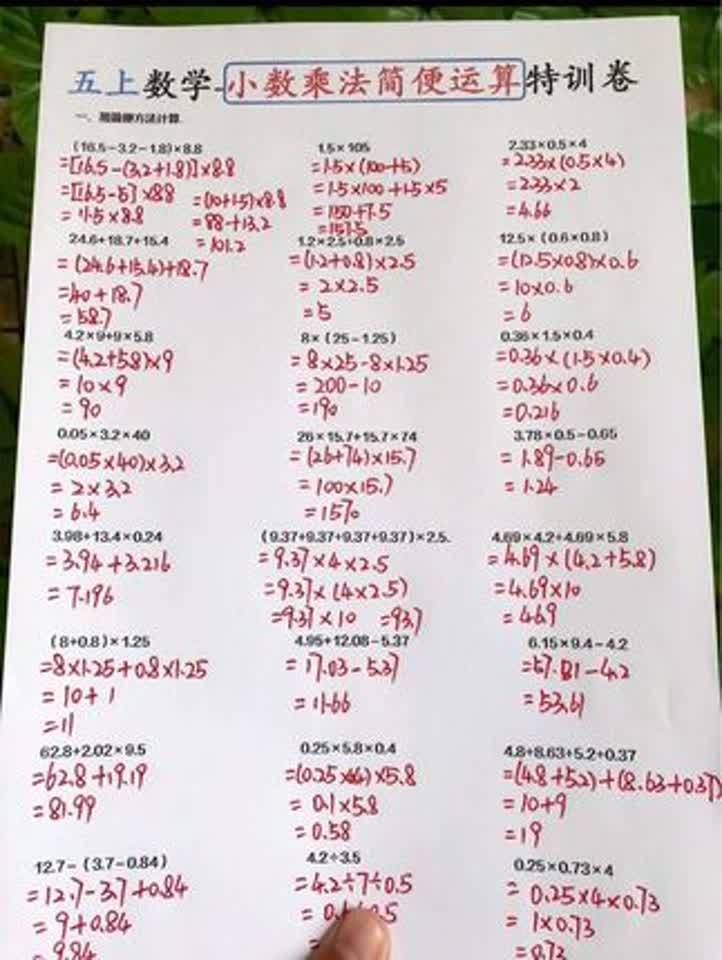 五上数学-小数乘法简便运算特训卷
一、用简便方法计算.
(16.5-3.2-1.8)×8.8
=[16.5-(3.2+1.8)]×8.8
=[16.5-5]×8.8
=11.5×8.8
=(10+1.5)×8.8
=88+13.2
=101.2
1.5×105
=1.5×(100+5)
=1.5×100+1.5×5
=150+7.5
=157.5
2.33×0.5×4
=2.33×(0.5×4)
=2.33×2
=4.66
24.6+18.7+15.4
=(24.6+15.4)+18.7
=40+18.7
=58.7
1.2×2.5+0.8×2.5
=(1.2+0.8)×2.5
=2×2.5
=5
12.5×(0.6×0.8)
=(12.5×0.8)×0.6
=10×0.6
=6
4.2×9+9×5.8
=(4.2+5.8)×9
=10×9
=90
8×(25-1.25)
=8×25-8×1.25
=200-10
=190
0.36×1.5×0.4
=0.36×(1.5×0.4)
=0.36×0.6
=0.216
0.05×3.2×40
=(0.05×40)×3.2
=2×3.2
=6.4
26×15.7+15.7×74
=(26+74)×15.7
=100×15.7
=1570
3.78×0.5-0.65
=1.89-0.65
=1.24
3.98+13.4×0.24
=3.94+3.216
=7.196
(9.37+9.37+9.37+9.37)×2.5.
=9.37×4×2.5
=9.37×(4×2.5)
=9.37×10 =93.7
4.69×4.2+4.69×5.8
=4.69×(4.2+5.8)
=4.69×10
=46.9
(8+0.8)×1.25
=8×1.25+0.8×1.25
=10+1
=11
4.95+12.08-5.37
=17.03-5.37
=11.66
6.15×9.4-4.2
=57.81-4.2
=53.61
62.8+2.02×9.5
=62.8+19.19
=81.99
0.25×5.8×0.4
=(0.25×0.4)×5.8
=0.1×5.8
=0.58
4.8+8.63+5.2+0.37
=(4.8+5.2)+(8.63+0.37)
=10+9
=19
12.7-(3.7-0.84)
=12.7-3.7+0.84
=9+0.84
=9.84
4.2÷3.5
=4.2÷7÷0.5
0.25×0.73×4
=0.25×4×0.73
=1×0.73
=0.73